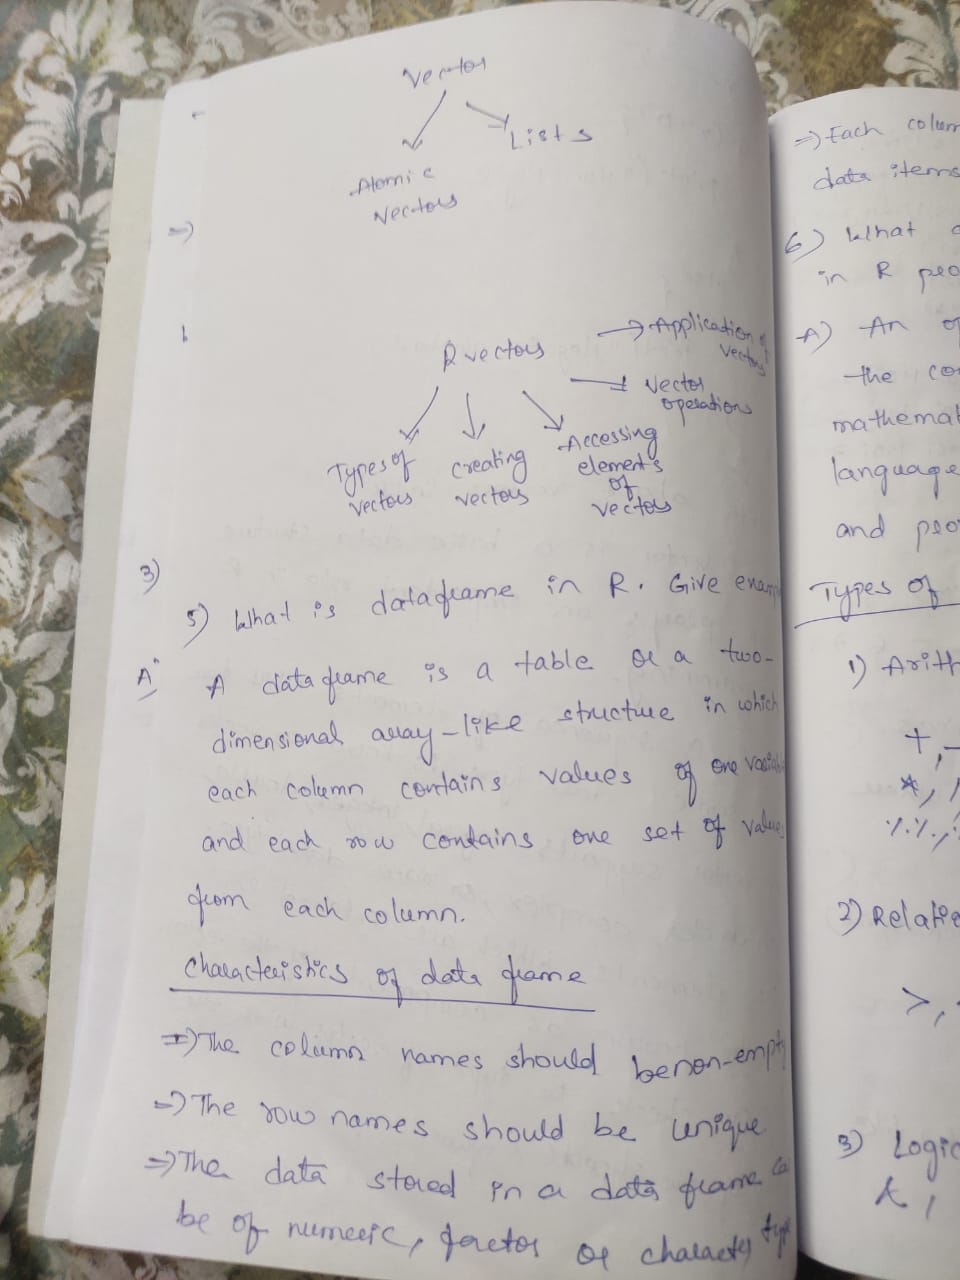 Vector
Lists
Atomic
Vectors
=>
R vectors
-> Application of
vectors
Vector
operations
Types of
vectors
creating
vectors
Accessing
elements
of
vectors
3)
5) What is dataframe in R. Give
A) A data frame is a table or a two-
dimensional array-like structure in which
each column contains values of one
and each row contains one set of
from each column.
Characteristics of data frame
=> The column names should be non-empty
=> The row names should be unique
=> The data stored in a data frame
be of numeric, factor or character type
=> Each
data items
6) What
in R
A) An
the
language
and
Types of
1)
+, -
*, /
%%,
2)
>,
3)